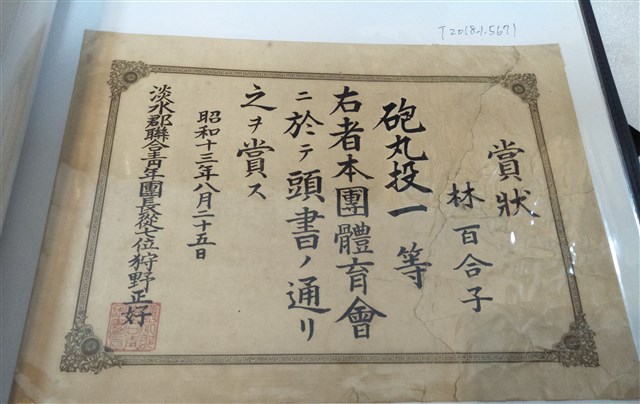 T2018.1.5671
賞狀
林百合子
砲丸投一等
右者本團體育會
ニ於テ頭書ノ通リ
之ヲ賞ス
昭和十三年八月二十五日
淡水郡聯合青年團長從七位狩野正好